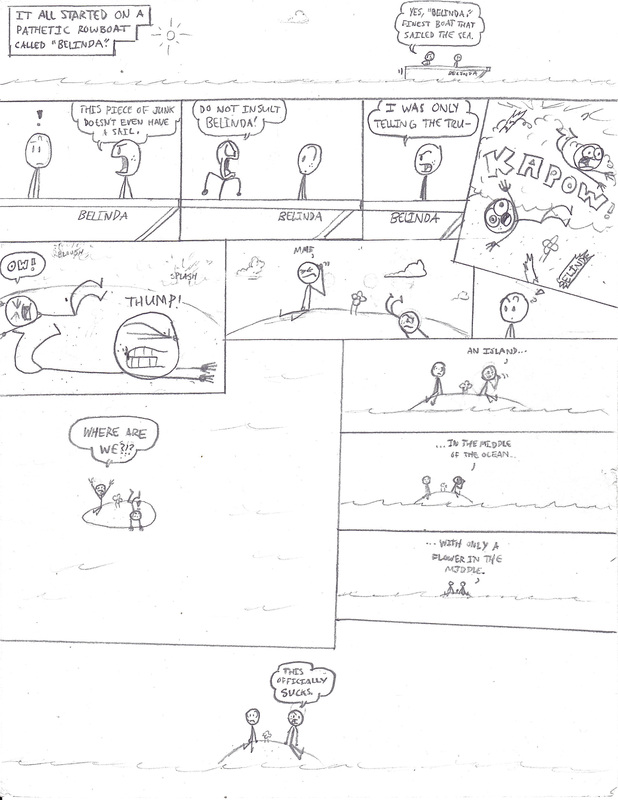 IT ALL STARTED ON A
PATHETIC ROWBOAT
CALLED "BELINDA".
YES, "BELINDA."
FINEST BOAT THAT
SAILED THE SEA.
BELINDA
!
THIS PIECE OF JUNK
DOESN'T EVEN HAVE
A SAIL.
BELINDA
DO NOT INSULT
BELINDA!
BELINDA
I WAS ONLY
TELLING THE TRU-
BELINDA
KAPOW!
BELINDA
OW!
SPLOUSH
SPLASH
THUMP!
?
WHERE ARE
WE?!?
AN ISLAND...
...IN THE MIDDLE
OF THE OCEAN...
...WITH ONLY A
FLOWER IN THE
MIDDLE.
THIS
OFFICIALLY
SUCKS.